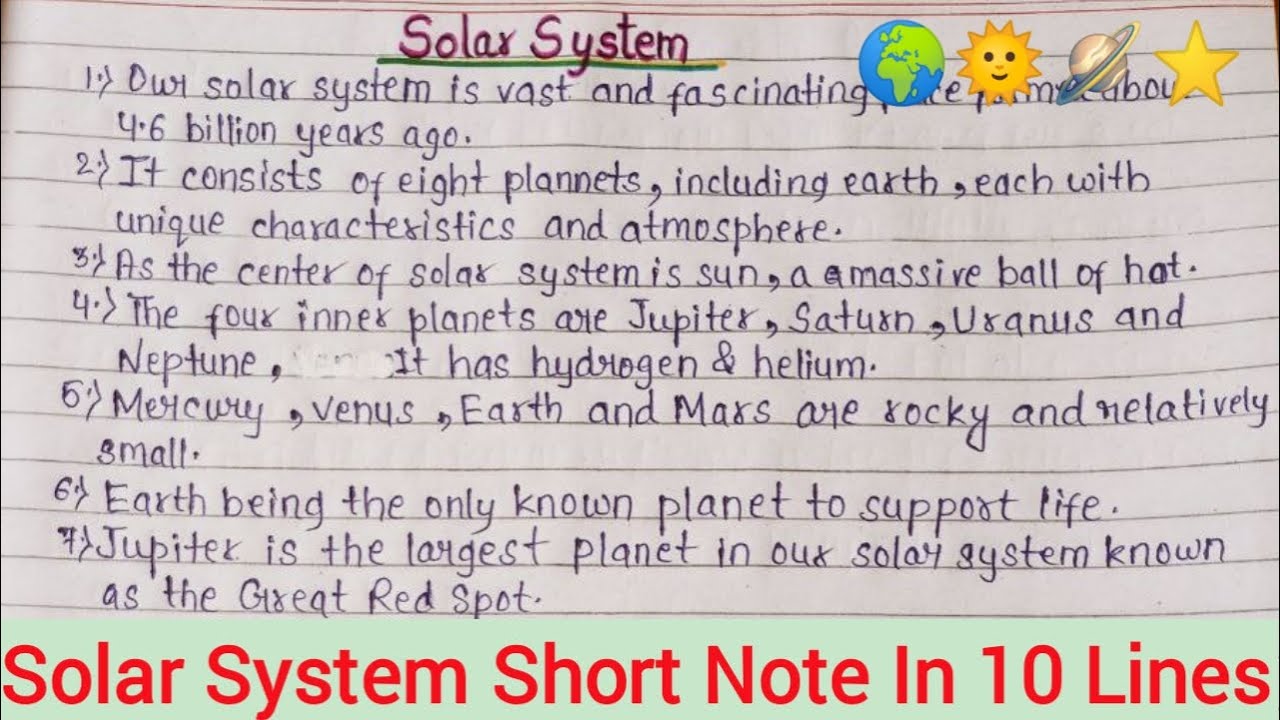 Solar System
1.) Our solar system is vast and fascinating
4.6 billion years ago.
2.) It consists of eight plannets, including earth, each with
unique characteristics and atmosphere.
3.) As the center of solar system is sun, a massive ball of hot.
4.) The four inner planets are Jupiter, Saturn, Uranus and
Neptune, It has hydrogen & helium.
5.) Mercury, Venus, Earth and Mars are rocky and relatively
small.
6.) Earth being the only known planet to support life.
7.) Jupiter is the largest planet in our solar system known
as the Great Red Spot.
Solar System Short Note In 10 Lines